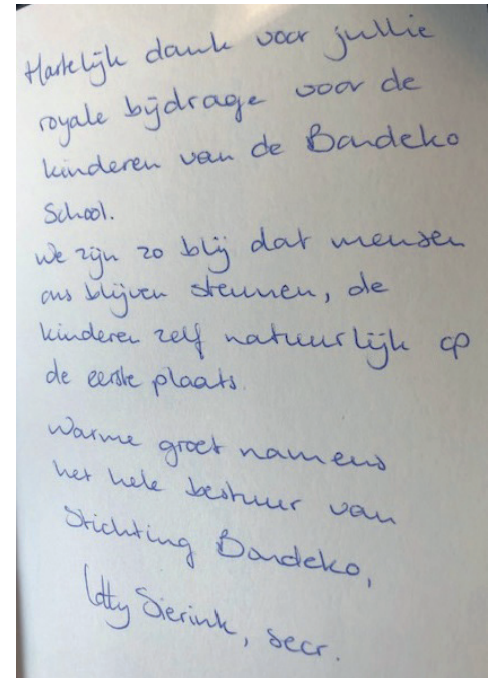 Hartelijk dank voor jullie
royale bijdrage voor de
kinderen van de Bandeko
School.
We zijn zo blij dat mensen
ons blijven steunen, de
kinderen zelf natuurlijk op
de eerste plaats.
Warme groet namens
het hele bestuur van
Stichting Bandeko,
Sierink, secr.